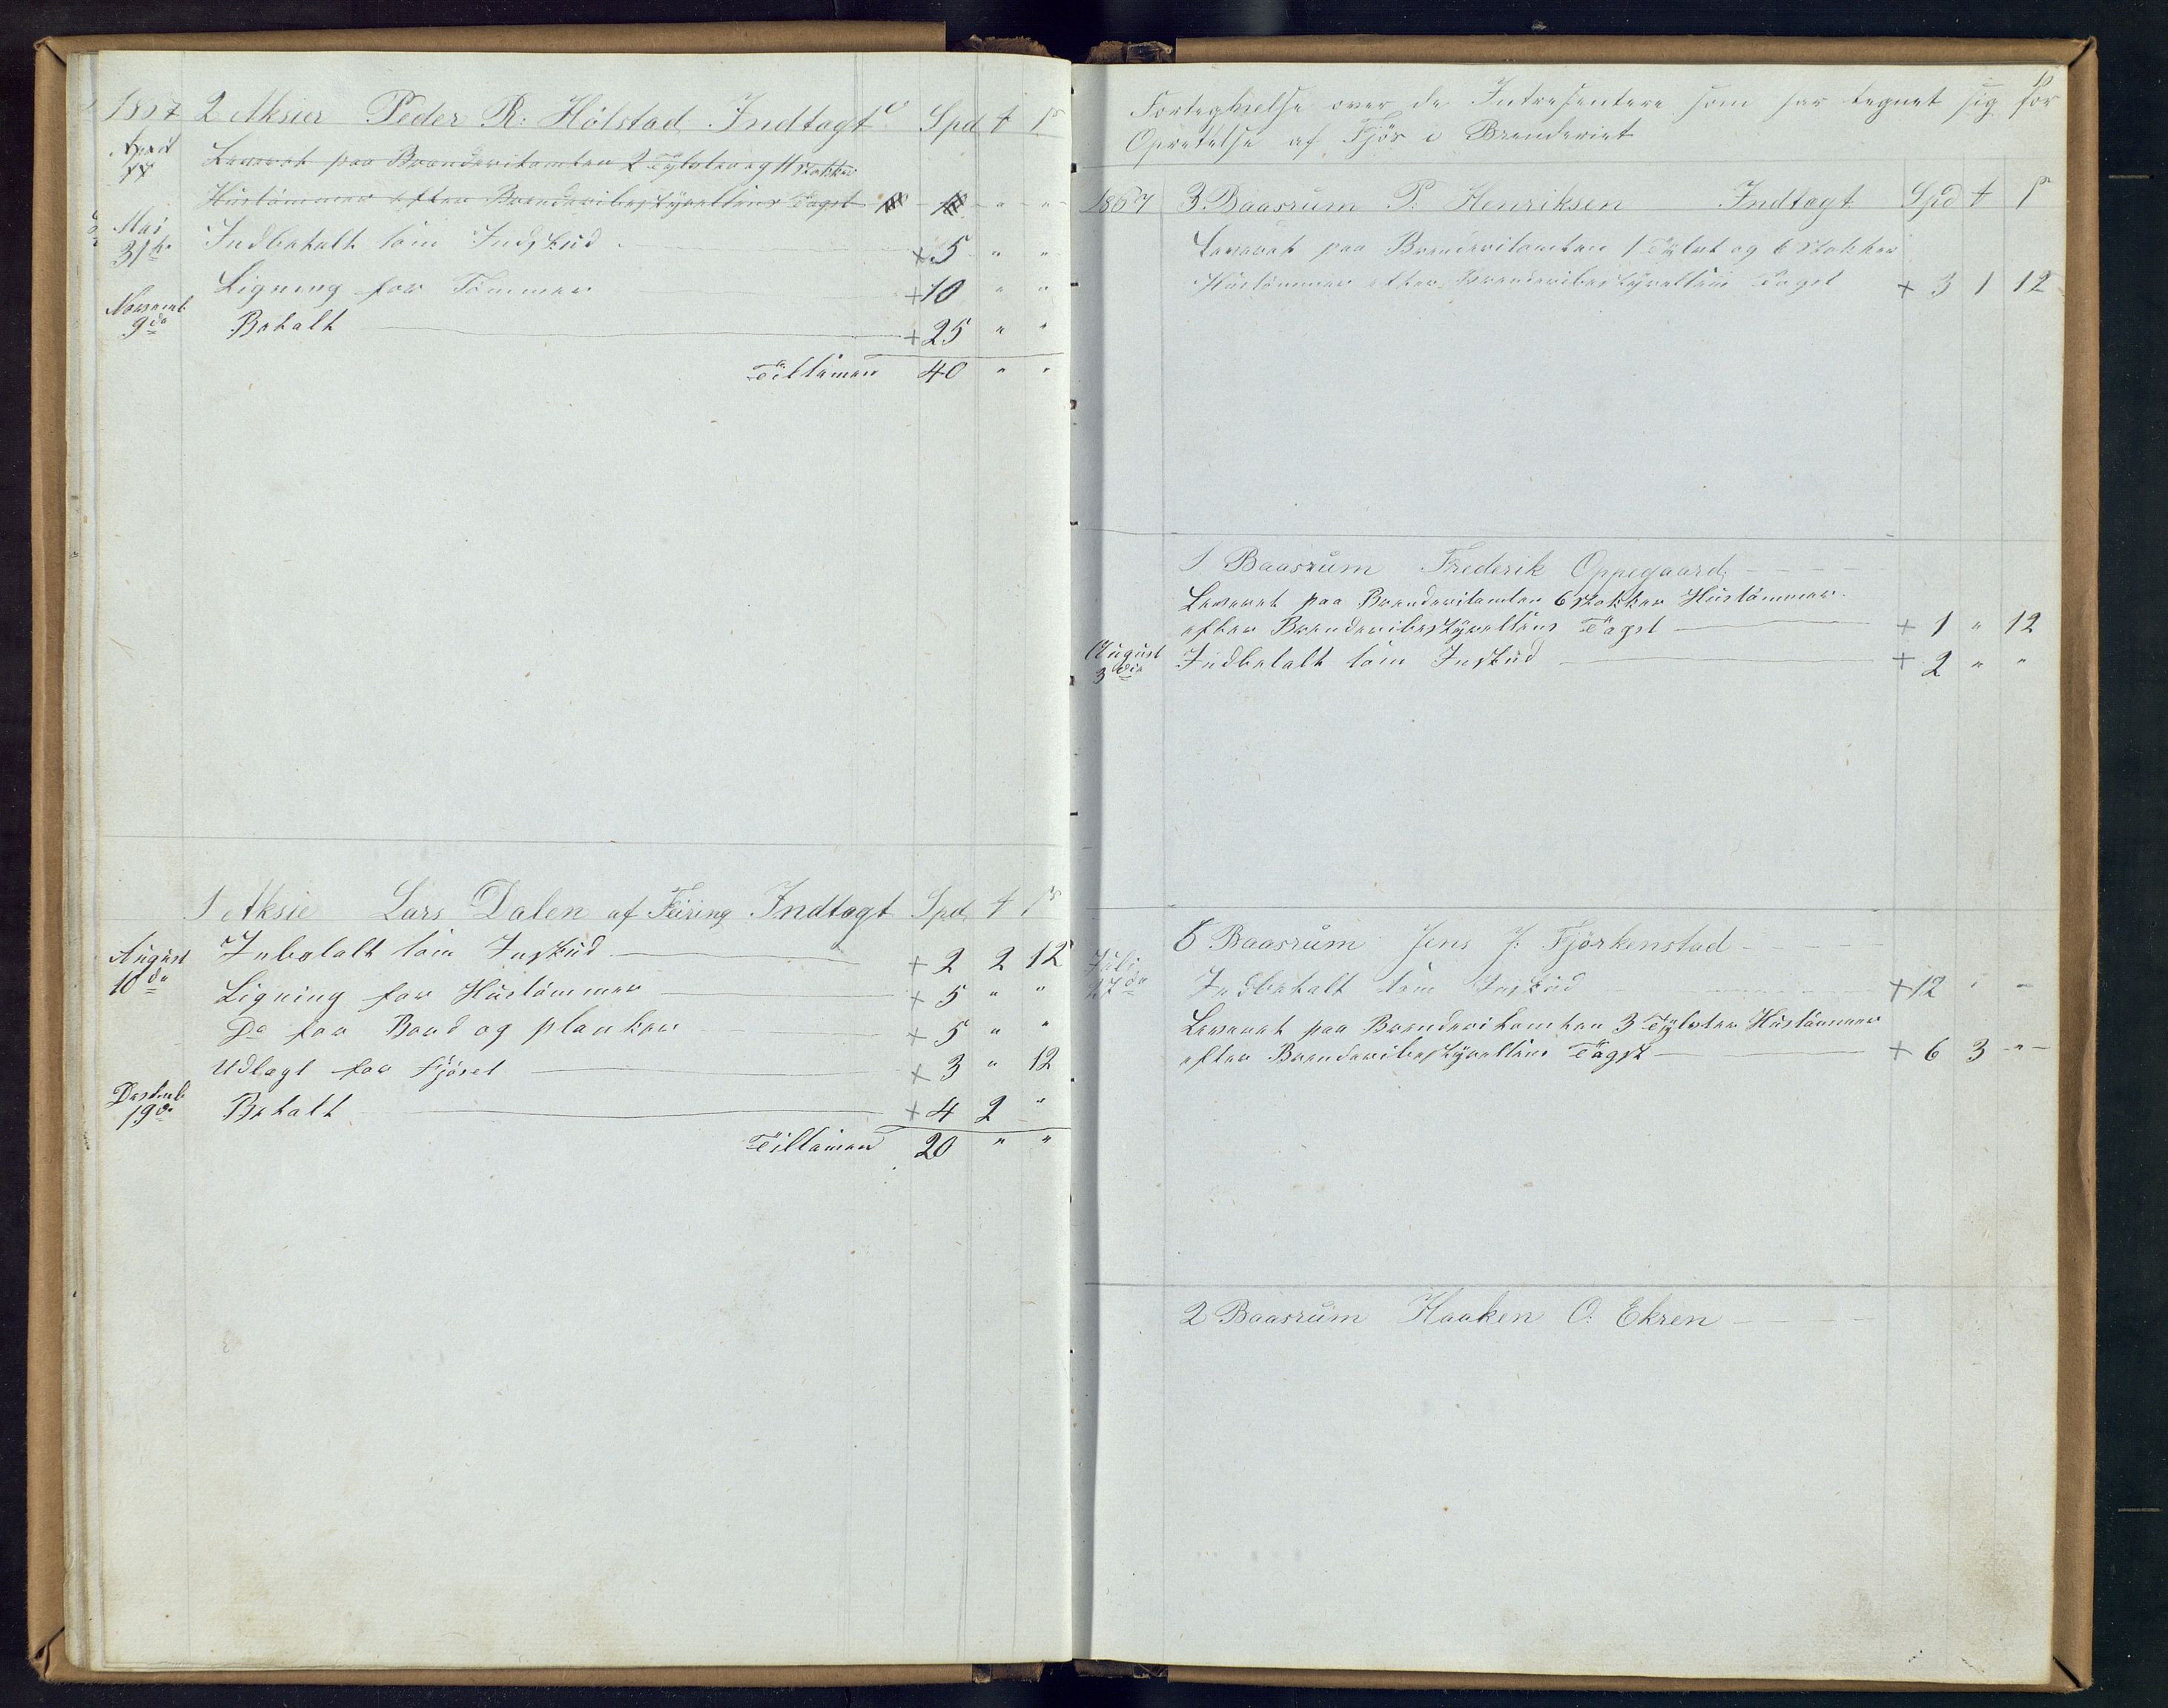 1867 2 Aksier Peder R: Hölstad Indtagt Spd t s
April
Leveret paa Brænderitomten 2 Tylvter og 11 stokker
Hüstömmer efter Brænderibestyreltens Tagst " "
Mai
31te Indbetalt som Indsküd + 5 " "
Ligning for Tömmer + 10 " "
Novemb.
9de Betalt + 25 " "
Tilsamen 40 " "
1 Aksie Lars Dalen af Feiring Indtagt Spd t s
August
10de Inbetalt som Insküd + 2 2 12
Ligning for Hüstömmer + 5 " "
Do for Bord og planker + 5 " "
Udlagt for Fjöset + 3 " 12
Desemb.
19de Betalt + 4 2 "
Tilsamen 20 " "
Forteghnelse over de Intresentere som har tegnet sig for
Opretelse af Fjös i Brenderiet
1867 3 Baasrüm P. Henriksen Indtagt Spd t s
Leveret paa Brænderitomten 1 Tylvt og 6 Stokker
Hüstömmer efter Brænderibestyreltens Tagst + 3 1 12
1 Baasrüm Frederik Oppegaard
Leveret paa Brænderitomten 6 stokker Hüstömmer
efter Brænderibestyreltens Tagst + 1 " 12
August
3die Indbetalt som Insküd + 2 " "
6 Baasrüm Jens J: Fjörkenstad
Juli
27de Indbetalt som Insküd + 12 " "
Leveret paa Brænderitomten 3 Tylvter Hüstömmer
efter Brænderibestyreltens Tagst + 6 3 "
2 Baasrüm Haaken O: Ekren